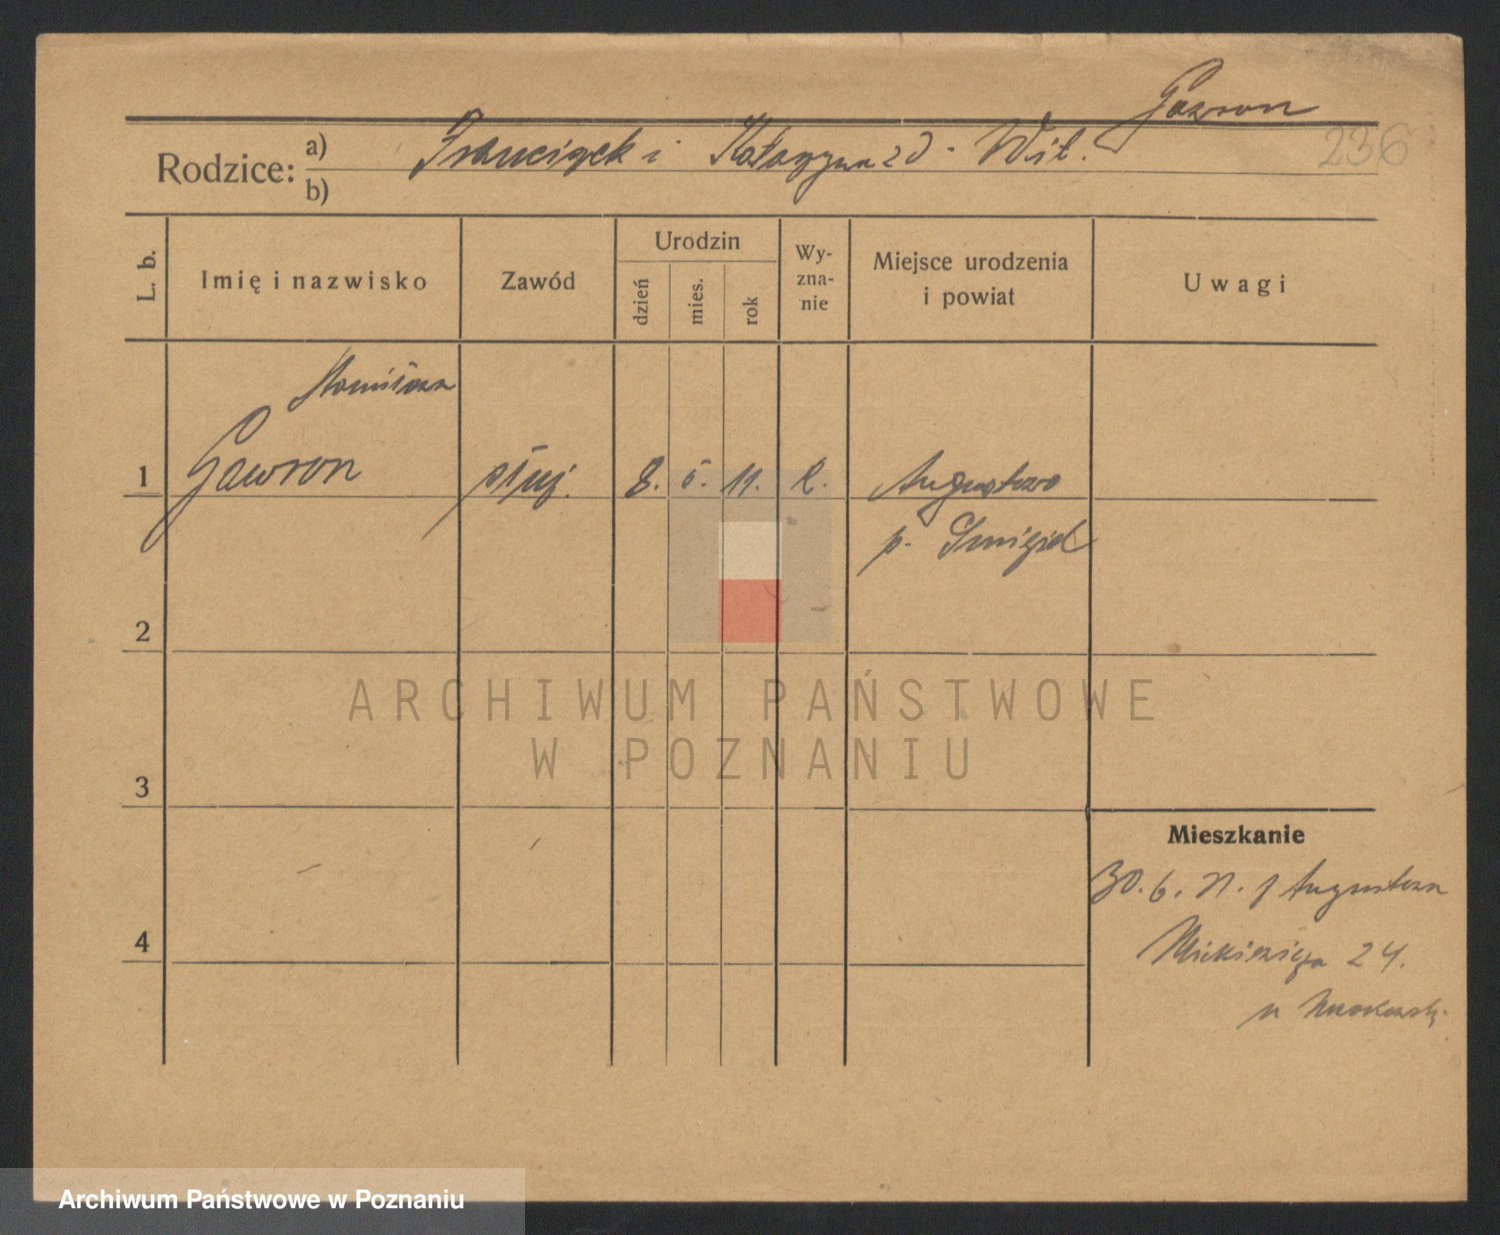 Gawron
236
Rodzice: a) Franciszek i Katarzyna zd. Wit.
b)
L. b.
Imię i nazwisko
Zawód
Urodzin
dzień
mies.
rok
Wy-
zna-
nie
Miejsce urodzenia
i powiat
Uwagi
Stanisława
1 Gawron służ. 8. 5. 11. k. Augustowo
p. Śmigiel
2
ARCHIWUM PAŃSTWOWE
W POZNANIU
3
Mieszkanie
30. 6. z Augustowa
4
Mickiewicza 24.
u
Archiwum Państwowe w Poznaniu